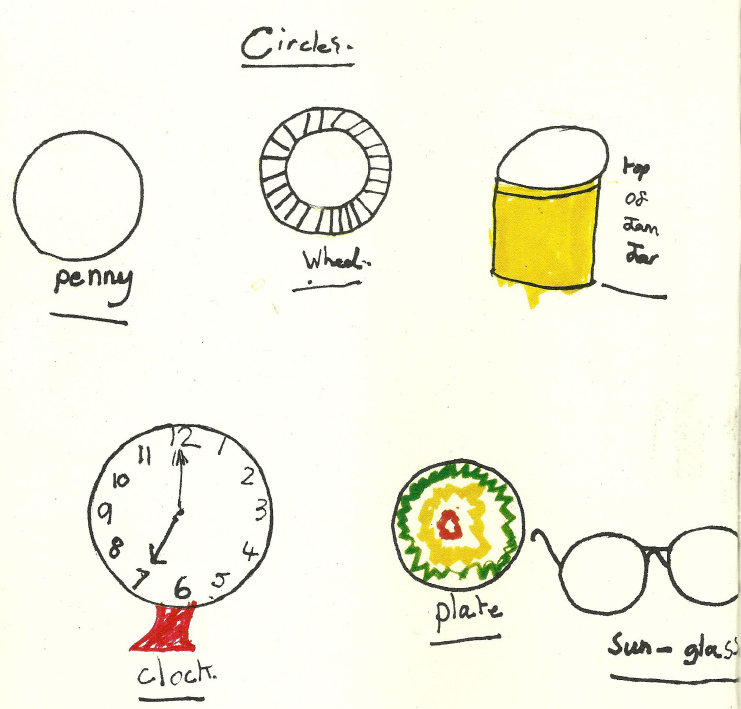 Circles.
penny
Wheel.
top
of
Jam
Jar
12
11
1
10
2
9
3
8
4
7
5
6
clock.
plate
Sun-glass